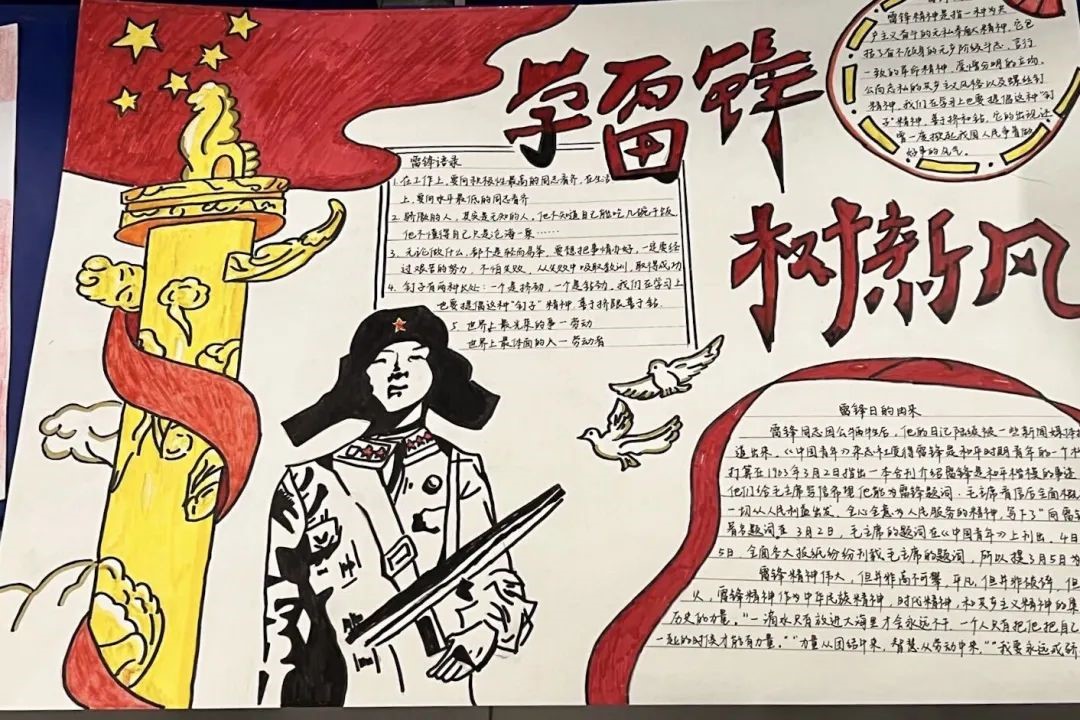 学雷锋
树新风
雷锋精神是指一种为共
产主义奋斗的无私奉献精神,它包
括了奋不顾身的无产阶级斗志,言行
一致的革命精神,爱憎分明的立场,
公而忘私的共产主义风格以及螺丝钉
精神,我们在学习上也要提倡这种“钉
子”精神,善于挤和钻,它的出现这
曾一度掀起我国人民争着做
好事的风气。
雷锋语录
1.在工作上,要向积极性最高的同志看齐,在生活
上,要向水平最低的同志看齐
2.骄傲的人,其实是无知的人,他不知道自己能吃几碗干饭
他不懂得自己只是沧海一粟……
3.无论做什么,都不是轻而易举,要想把事情办好,一定要经
过艰苦的努力,不怕失败,从失败中吸取教训,取得成功
4.钉子有两种长处:一个是挤劲,一个是钻劲,我们在学习上
也要提倡这种“钉子”精神,善于挤跟善于钻.
5.世界上最光荣的事—劳动
世界上最体面的人—劳动者
雷锋日的由来
雷锋同志因公牺牲后,他的日记陆续被一些新闻媒体
道出来,《中国青年》杂志社觉得雷锋是和平时期青年的一个
打算在1963年3月2日指出一本合刊介绍雷锋是和平楷模的事迹
他们给毛主席写信希望他能为雷锋题词.毛主席看信后全面
一切从人民利益出发,全心全意为人民服务的精神,写下了“向雷
著名题词至3月2日,毛主席的题词在《中国青年》上刊出,4日
5日,全国各大报纸纷纷刊载毛主席的题词,所以提3月5日为
雷锋精神伟大,但并非高不可攀,平凡,但并非破碎,但
从,雷锋精神作为中华民族精神,时代精神,和共产主义精神的集
历史的力量。“一滴水只有放进大海里才会永远不干,一个人只有把他把自己
一起的时候才能有力量。”“力量从团结中来,智慧从劳动中来,”“我要永远戒骄